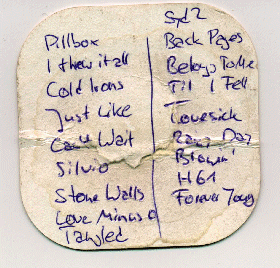 Pillbox
I threw it all
Cold Irons
Just Like
Can't Wait
Silvio
Stone Walls
Love Minus 0
Tangled
Syd 2
Back Pages
Belongs To Me
Til I Fell
Lovesick
Rainy Day
Blowin'
H61
Forever Young